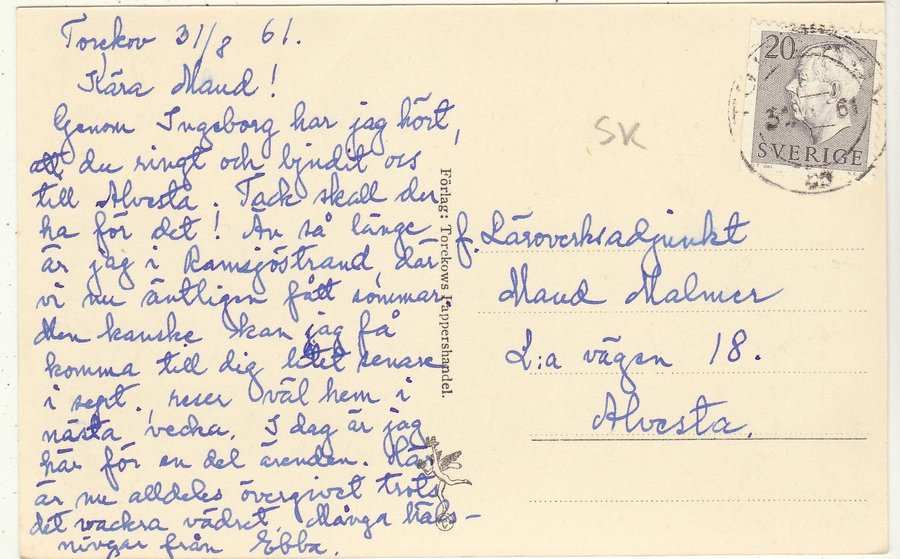 Torekov 31/8 61.
Kära Maud!
Genom Ingeborg har jag hört,
att du ringt och bjudit oss
till Alvesta. Tack skall du
ha för det! Än så länge
är jag i Ramsjöstrand, där
vi nu äntligen fått sommar.
Men kanske kan jag få
komma till dig litet senare
i sept., reser väl hem i
nästa vecka. I dag är jag
här för en del ärenden. Här
är nu alldeles övergivet trots
det vackra vädret. Många häls-
ningar från Ebba.
Förlag: Torekows Pappershandel.
SK
20
SVERIGE
31
61
f. Läroverksadjunkt
Maud Malmer
L:a vägen 18.
Alvesta.